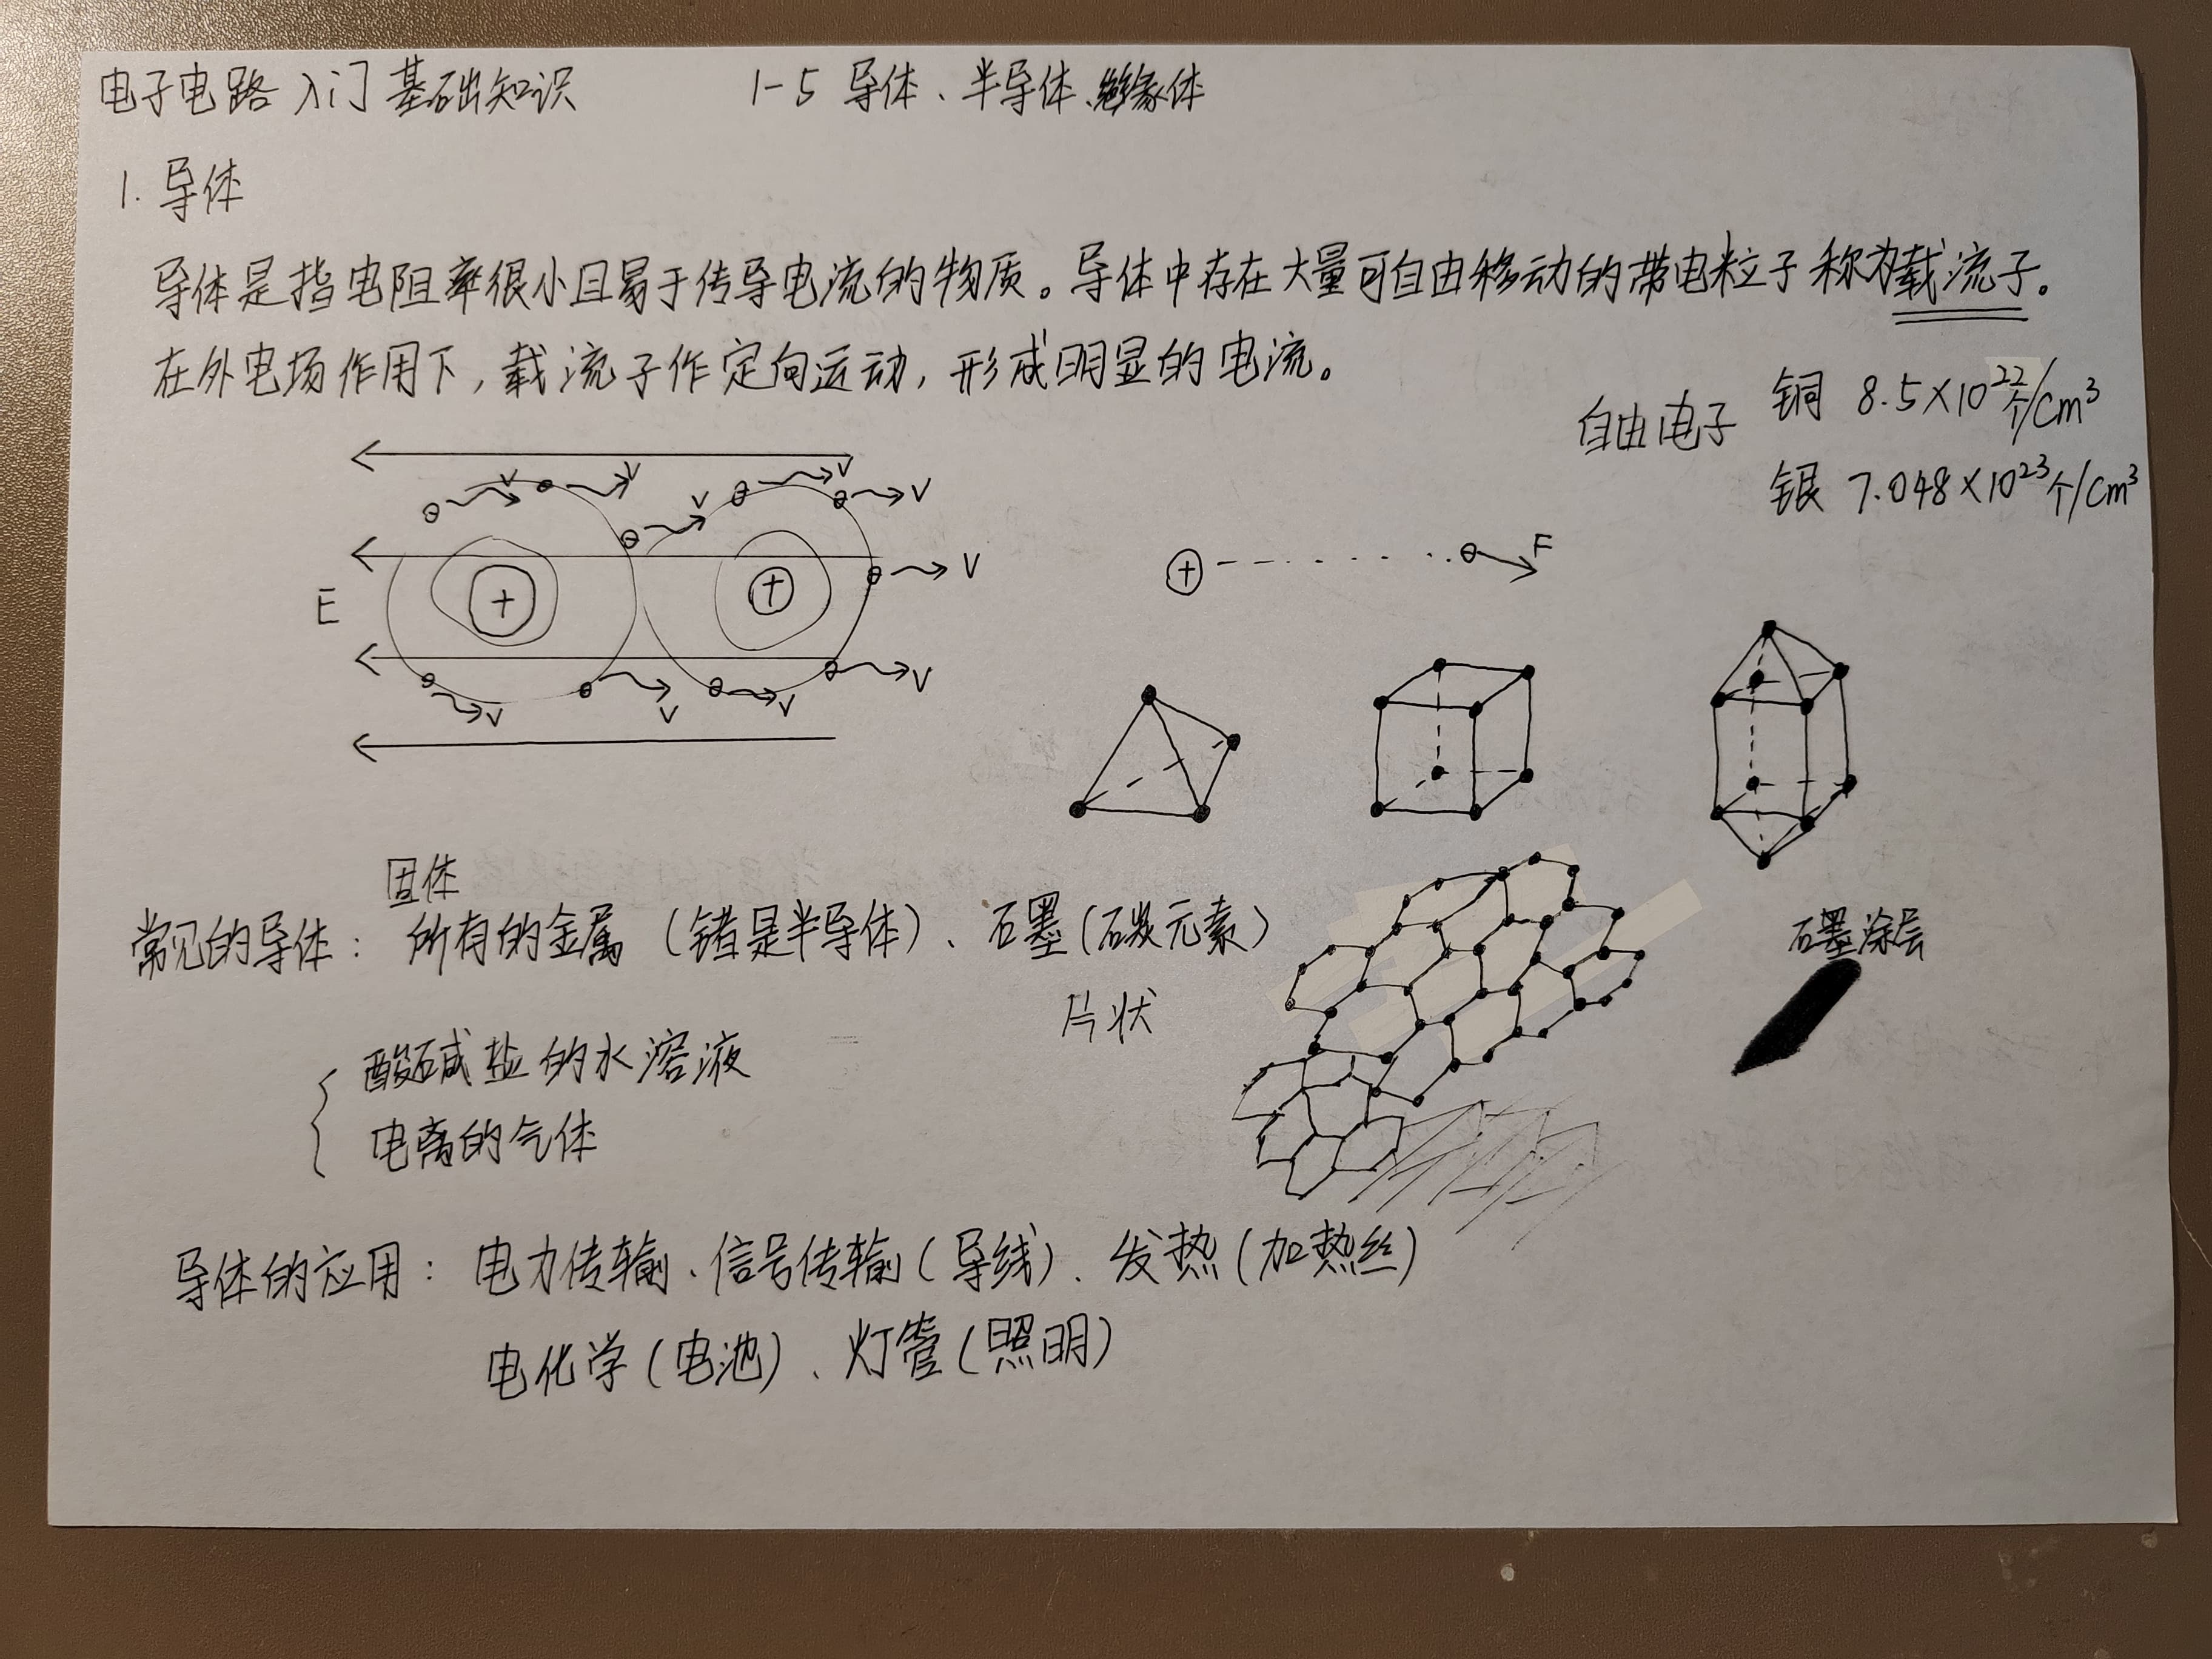 电子电路入门基础知识 1-5 导体、半导体、绝缘体
1. 导体
导体是指电阻率很小且易于传导电流的物质。导体中存在大量可自由移动的带电粒子称为载流子。
在外电场作用下，载流子作定向运动，形成明显的电流。
自由电子 铜 8.5×10²²个/cm³
银 7.048×10²³个/cm³
V V V V V
F
V
E
V V V V
固体
常见的导体：所有的金属（锗是半导体）、石墨（碳元素）
石墨涂层
片状
酸碱盐的水溶液
电离的气体
导体的应用：电力传输、信号传输（导线）、发热（加热丝）
电化学（电池）、灯管（照明）